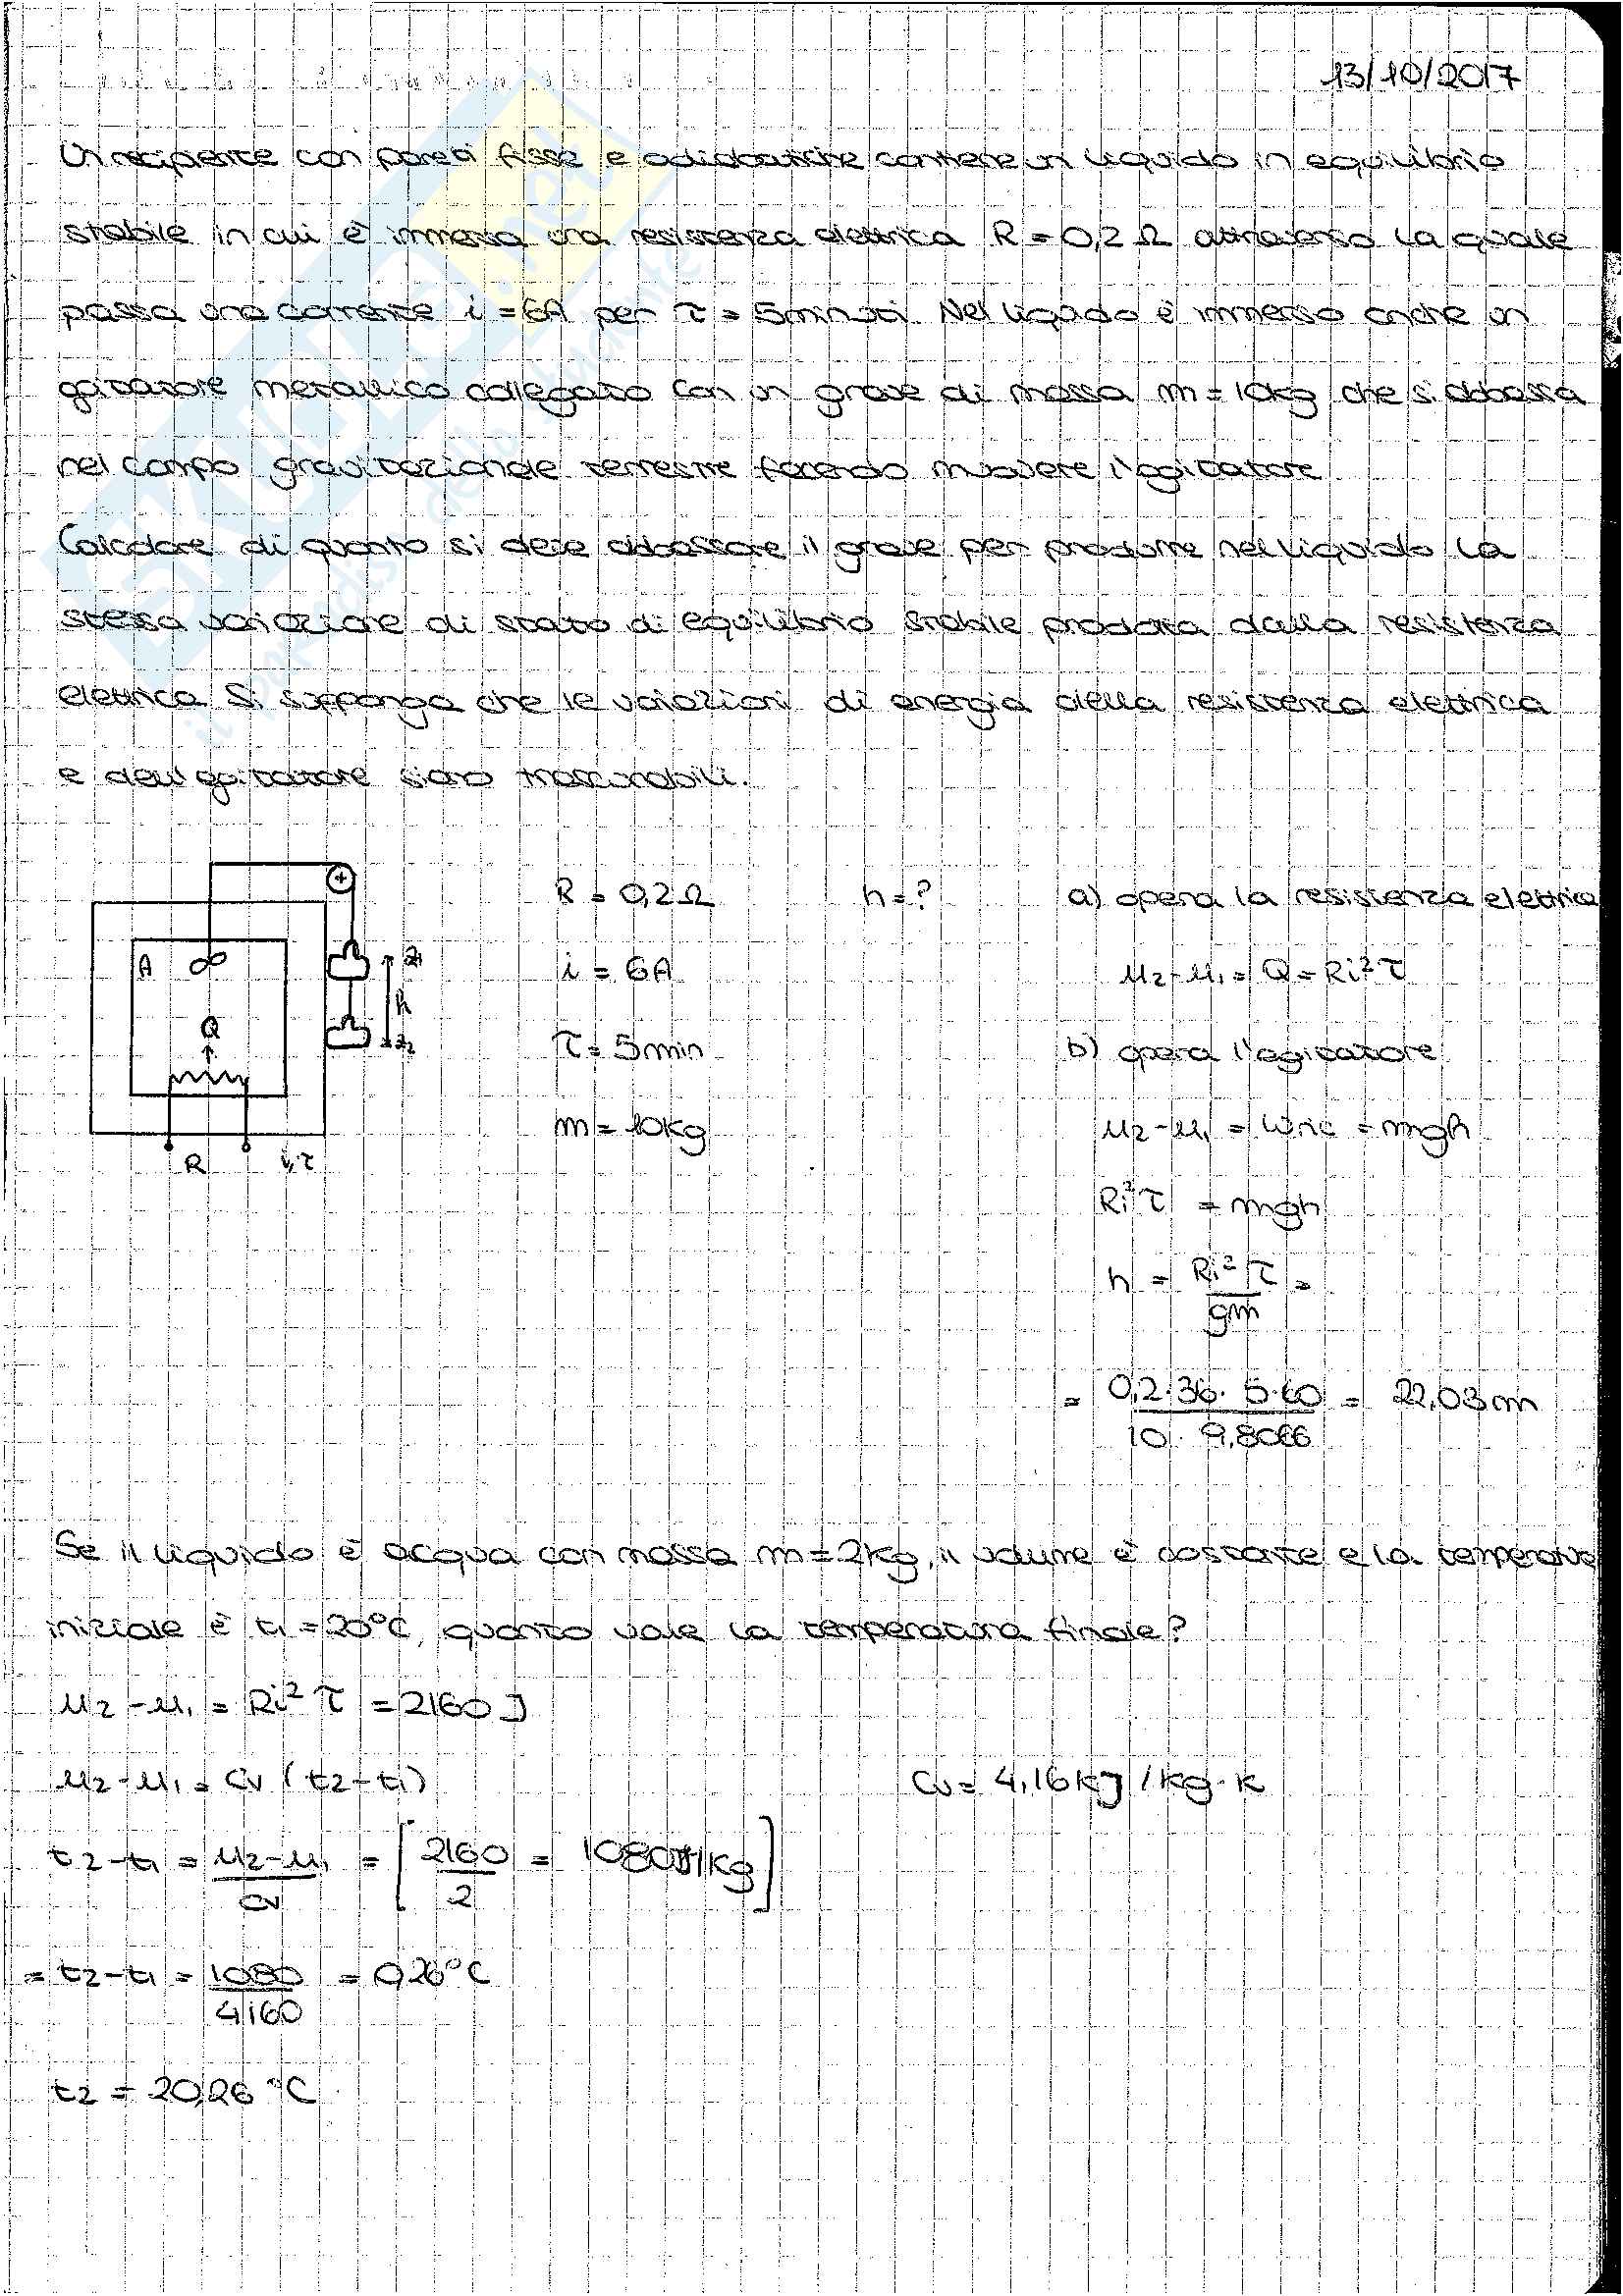 13/10/2017
Un recipiente con pareti fisse e adiabatiche contiene un liquido in equilibrio
stabile in cui è immersa una resistenza elettrica R = 0,2 Ω attraverso la quale
passa una corrente i = 6A per τ = 5minuti. Nel liquido è immerso anche un
agitatore metallico collegato con un grave di massa m = 10kg che si abbassa
nel campo gravitazionale terrestre facendo muovere l'agitatore
Calcolare di quanto si deve abbassare il grave per produrre nel liquido la
stessa variazione di stato di equilibrio stabile prodotta dalla resistenza
elettrica. Si supponga che le variazioni di energia della resistenza elettrica
e dell'agitatore siano trascurabili.
R = 0,2Ω h = ? a) opera la resistenza elettrica
A z1
i = 6A u2-u1 = Q = Ri²τ
h
Q
z2
τ = 5min b) opera l'agitatore
m = 10kg u2-u1 = = mgh
R i,τ
Ri²τ = mgh
h = Ri²τ =
gm
= 0,2·36·5·60 = 22,03m
10·9,8066
Se il liquido è acqua con massa m = 2kg, il volume è costante e la temperatura
iniziale è t1 = 20°C, quanto vale la temperatura finale?
u2-u1 = Ri²τ = 2160J
u2-u1 = cv (t2-t1) cv = 4,16kJ/kg·K
t2-t1 = u2-u1 = [2160 = 1080J/kg]
cv 2
= t2-t1 = 1080 = 0,26°C
4160
t2 = 20,26 °C